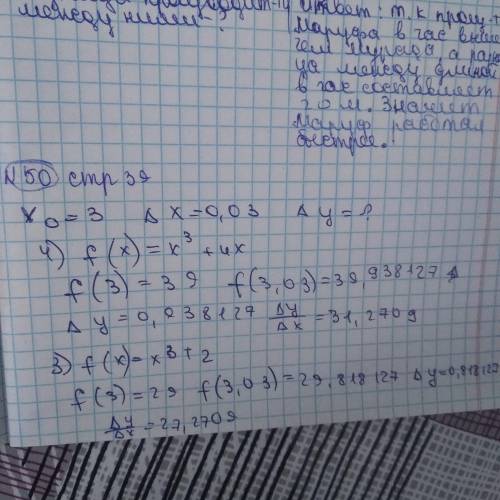 между ними - ?
Ответ: т.к прои
Маруфа в час выше
чем Мурада, а разн
ца между длиной
в час составляет
20 м. Значит
Маруф работал
быстрее.
№50 стр 39
x₀ = 3 Δ x = 0,03 Δ y = ?
4) f(x) = x³ + 4x
f(3) = 39 f(3,03) = 39,938127 Δ
Δ y = 0,938127 Δy/Δx = 31,2709
3) f(x) = x³ + 2
f(3) = 29 f(3,03) = 29,818127 Δ y = 0,818127
Δy/Δx = 27,2709